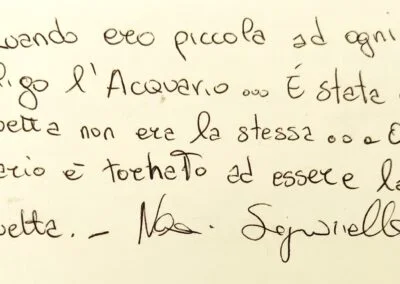 uando ero piccola ad ogni
ligo l'Acquario ... É stata
etta non era la stessa ... E
ario è tornato ad essere la
etta. -